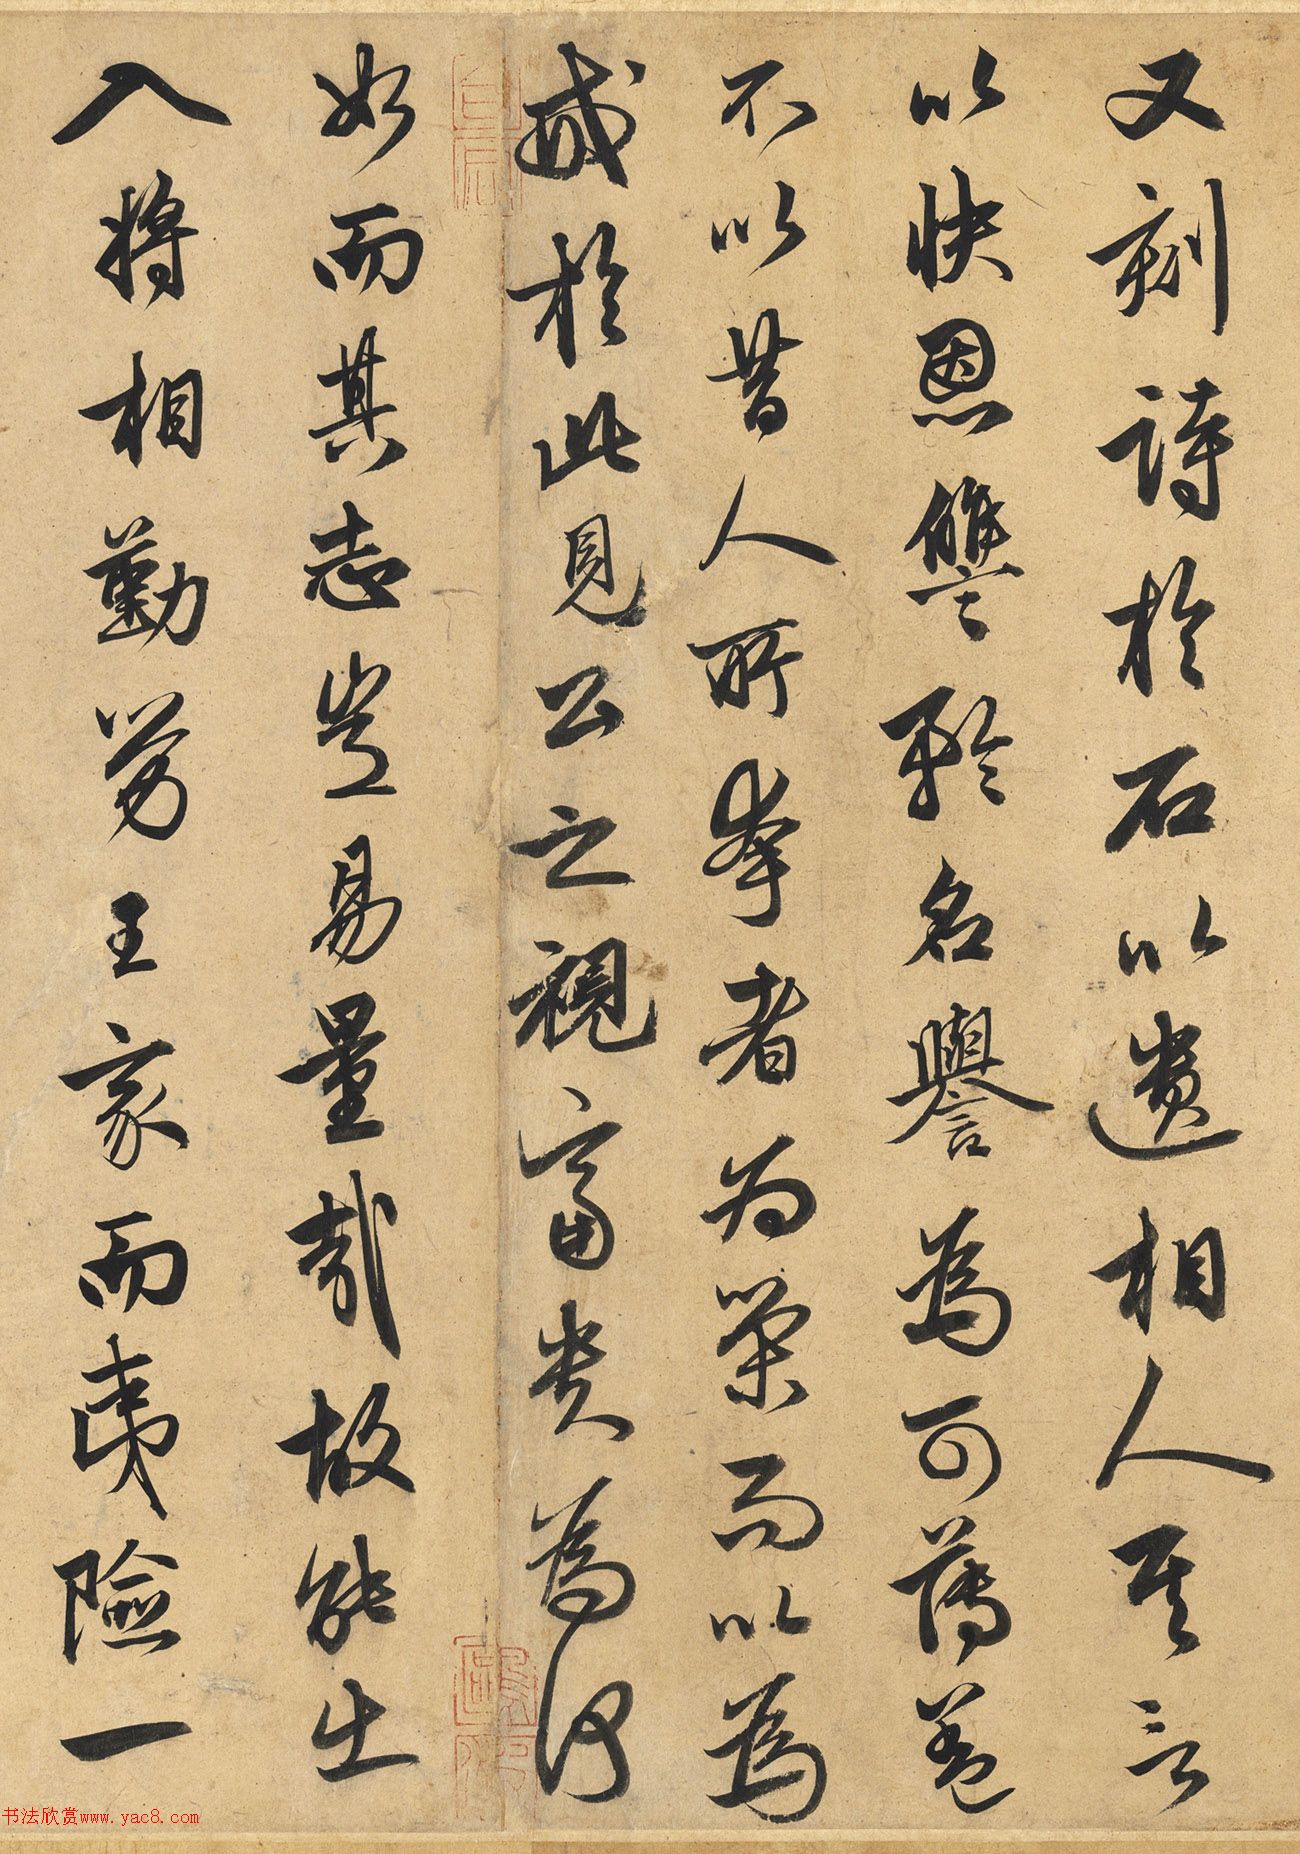 又刻詩於石以遺相人其言
以快恩讐矜名譽為可薄蓋
不以昔人所夸者为榮而以為
戒於此見公之視富贵為何
如而其志豈易量哉故能出
入將相勤劳王家而夷險一
书法欣赏www.yac8.com